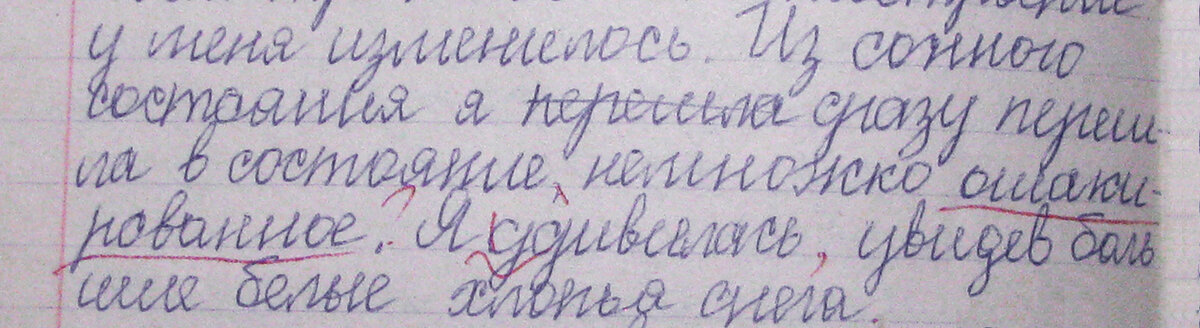 у меня изменилось. Из сонного
состояния я перешла сразу переш-
ла в состояние, немножко ошаки-
рованное. ? Я удивилась, увидев боль
шие белые хлопья снега.